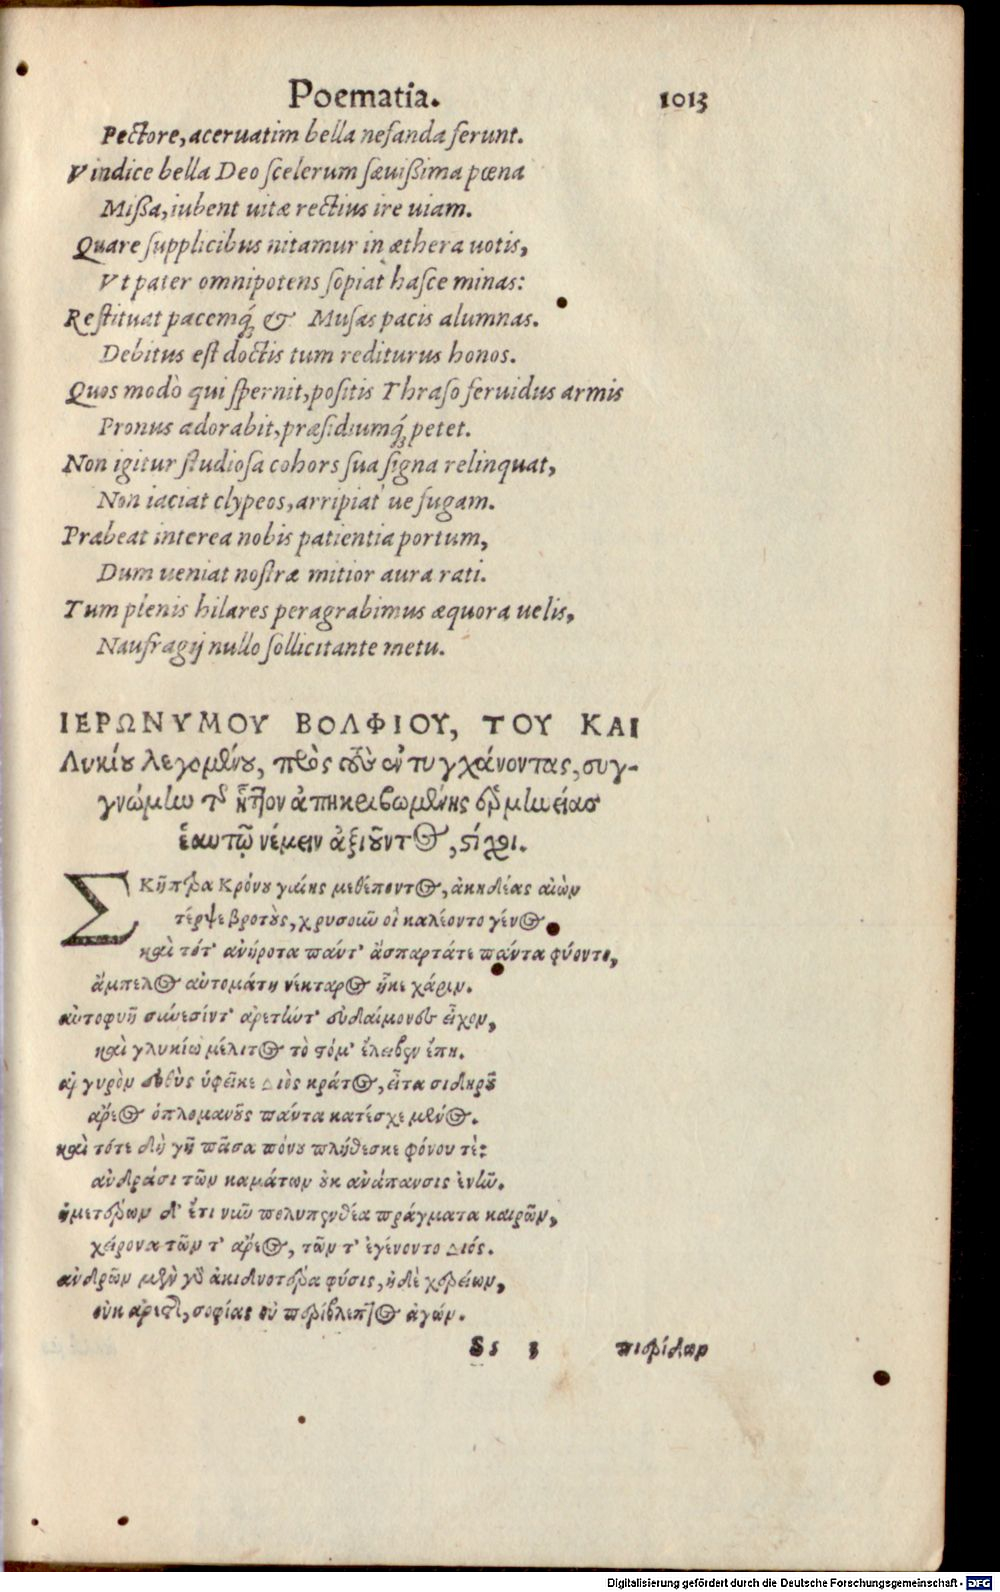 Poematia. 1013
Pectore, aceruatim bella nefanda ferunt.
Vindice bella Deo scelerum sæuißima pœna
Mißa, iubent uitæ rectius ire uiam.
Quare supplicibus nitamur in æthera uotis,
Vt pater omnipotens sopiat hasce minas:
Restituat pacemq́ꝫ & Musas pacis alumnas.
Debitus est doctis tum rediturus honos.
Quos modò qui spernit, positis Thraso feruidus armis
Pronus adorabit, præsidiumq́ꝫ petet.
Non igitur studiosa cohors sua signa relinquat,
Non iaciat clypeos, arripiat ue fugam.
Præbeat interea nobis patientia portum,
Dum ueniat nostræ mitior aura rati.
Tum plenis hilares peragrabimus æquora uelis,
Naufragij nullo sollicitante metu.
ΙΕΡΩΝΥΜΟΥ ΒΟΛΦΙΟΥ, ΤΟΥ ΚΑΙ
Λυκίου λεγομένου, πρὸς τοὺς ἐντυγχάνοντας, συγ-
γνώμην τῆς ἧττον ἀπηκριβωμένης ἑρμηνείας
ἑαυτῷ νέμειν ἀξιοῦντος, στίχοι.
Σκῆπτρα Κρόνου γαίης μεθέποντος, ἀκηδέας αἰὼν
τέρψε βροτοὺς, χρυσοῦν οἳ καλέοντο γένος.
καὶ τότ' ἀνήροτα πάντ' ἄσπαρτάτε πάντα φύοντο,
ἄμπελος αὐτομάτη νέκταρος ἧκε χάριν.
αὐτοφυῆ σύνεσίντ' ἀρετήντ' εὐδαίμονες εἶχον,
καὶ γλυκίω μέλιτος τὸ στόμ' ἔλειβεν ἔπη.
ἀργυρὸν εὐθὺς ὑφεῖκε Διὸς κράτος, εἶτα σιδηροῦ
ἄρεος ὁπλομανοῦς πάντα κατέσχε μένος.
καὶ τότε δὴ γῆ πᾶσα πόνου πλήθεσκε φόνου τὲ:
ἀνδράσι τῶν καμάτων οὐκ ἀνάπαυσις ἐνῆν.
ἡμετέρων δ' ἔτι νῦν πολυπενθέα πράγματα καιρῶν,
χείρονα τῶν τ' ἄρεος, τῶν τ' ἐγένοντο Διός.
ἀνδρῶν μὲν γὰρ ἀκιδνοτέρα φύσις, ἠδὲ χερείων,
οὐκ ἀρετῆς, σοφίας οὐ περίβλεπτος ἀγών.
Ss 3